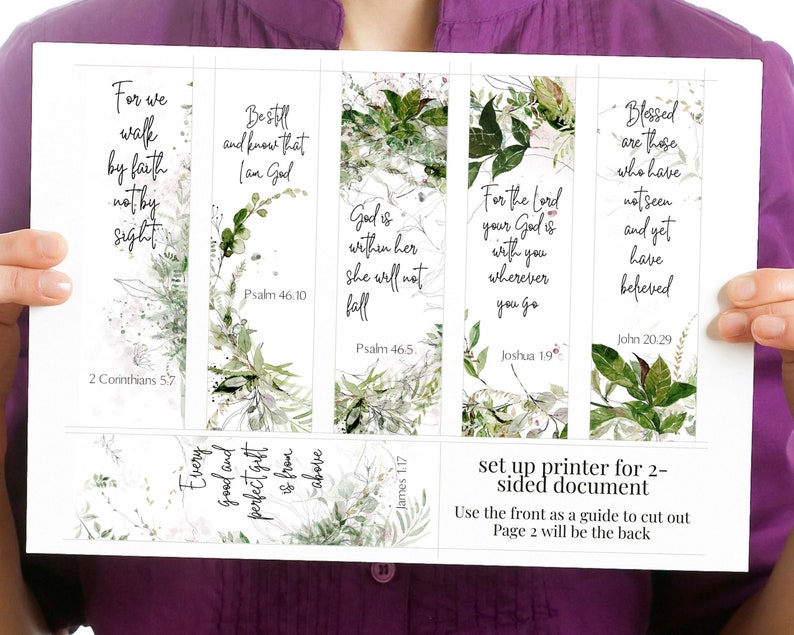 For we
walk
by faith
not by
sight
2 Corinthians 5.7
Be still
and know that
I am God
Psalm 46:10
God is
within her
she will not
fall
Psalm 46:5
For the Lord
your God is
with you
wherever
you go
Joshua 1:9
Blessed
are those
who have
not seen
and yet
have
believed
John 20:29
Every
good and
perfect gift
is from
above
James 1:17
set up printer for 2-
sided document
Use the front as a guide to cut out
Page 2 will be the back